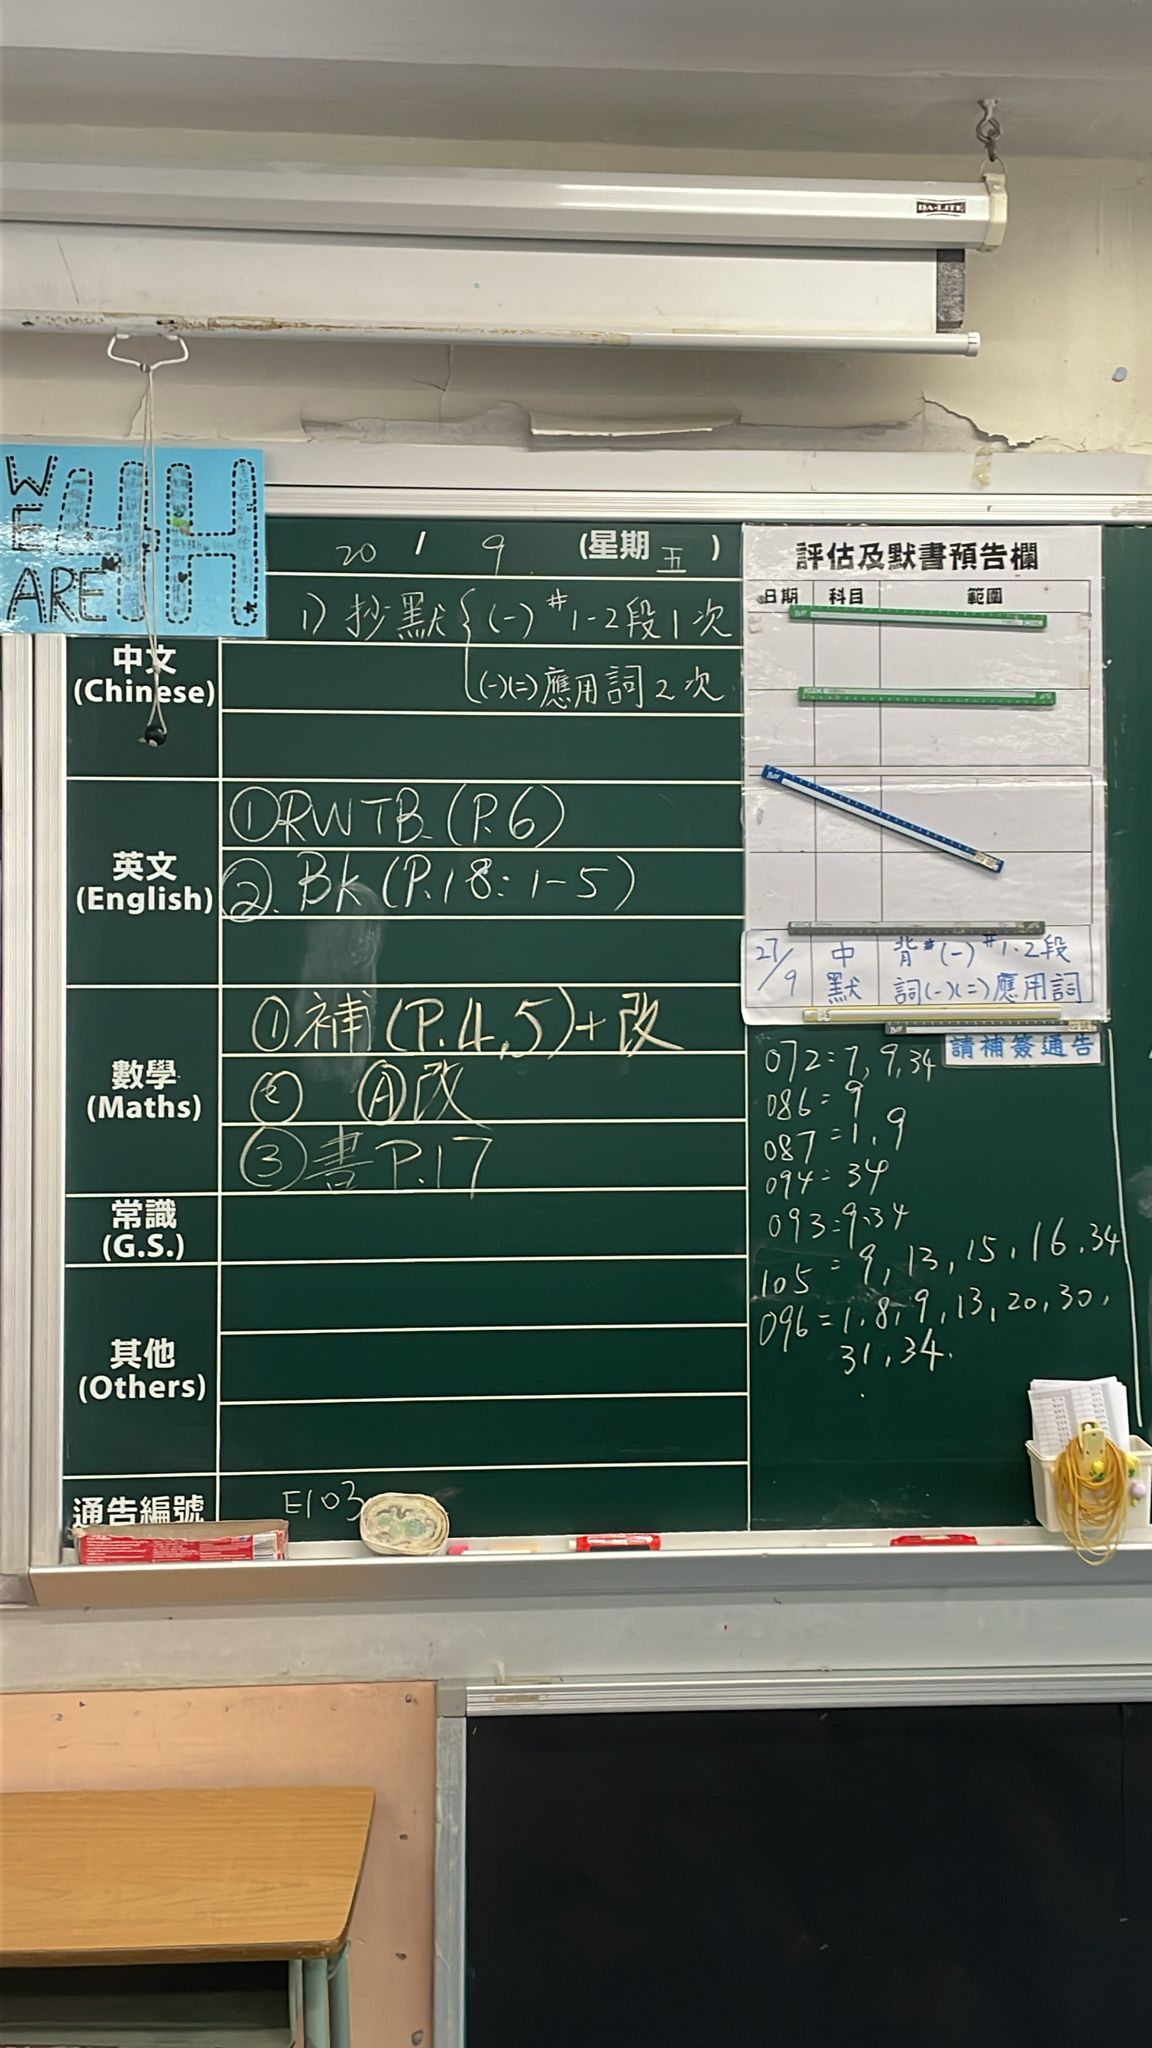 DA-LITE
WE ARE 4H
20 / 9 (星期五)
中文
(Chinese)
1) 抄默 { (一) # 1-2段1次
(一)(二)應用詞2次
英文
(English)
① RWTB (P.6)
②. Bk (P.18: 1-5)
數學
(Maths)
① 補 (P.4,5)+改
② Ⓐ改
③ 書 P.17
常識
(G.S.)
其他
(Others)
通告編號
E103
評估及默書預告欄
日期 科目 範圍
27/9 中默 背#(一)#1.2段
詞(一)(二)應用詞
請補簽通告
072=7,9,34
086=9
087=1,9
094=34
093=9.34
105=9,13,15,16.34
096=1.8,9,13,20,30,
31,34.